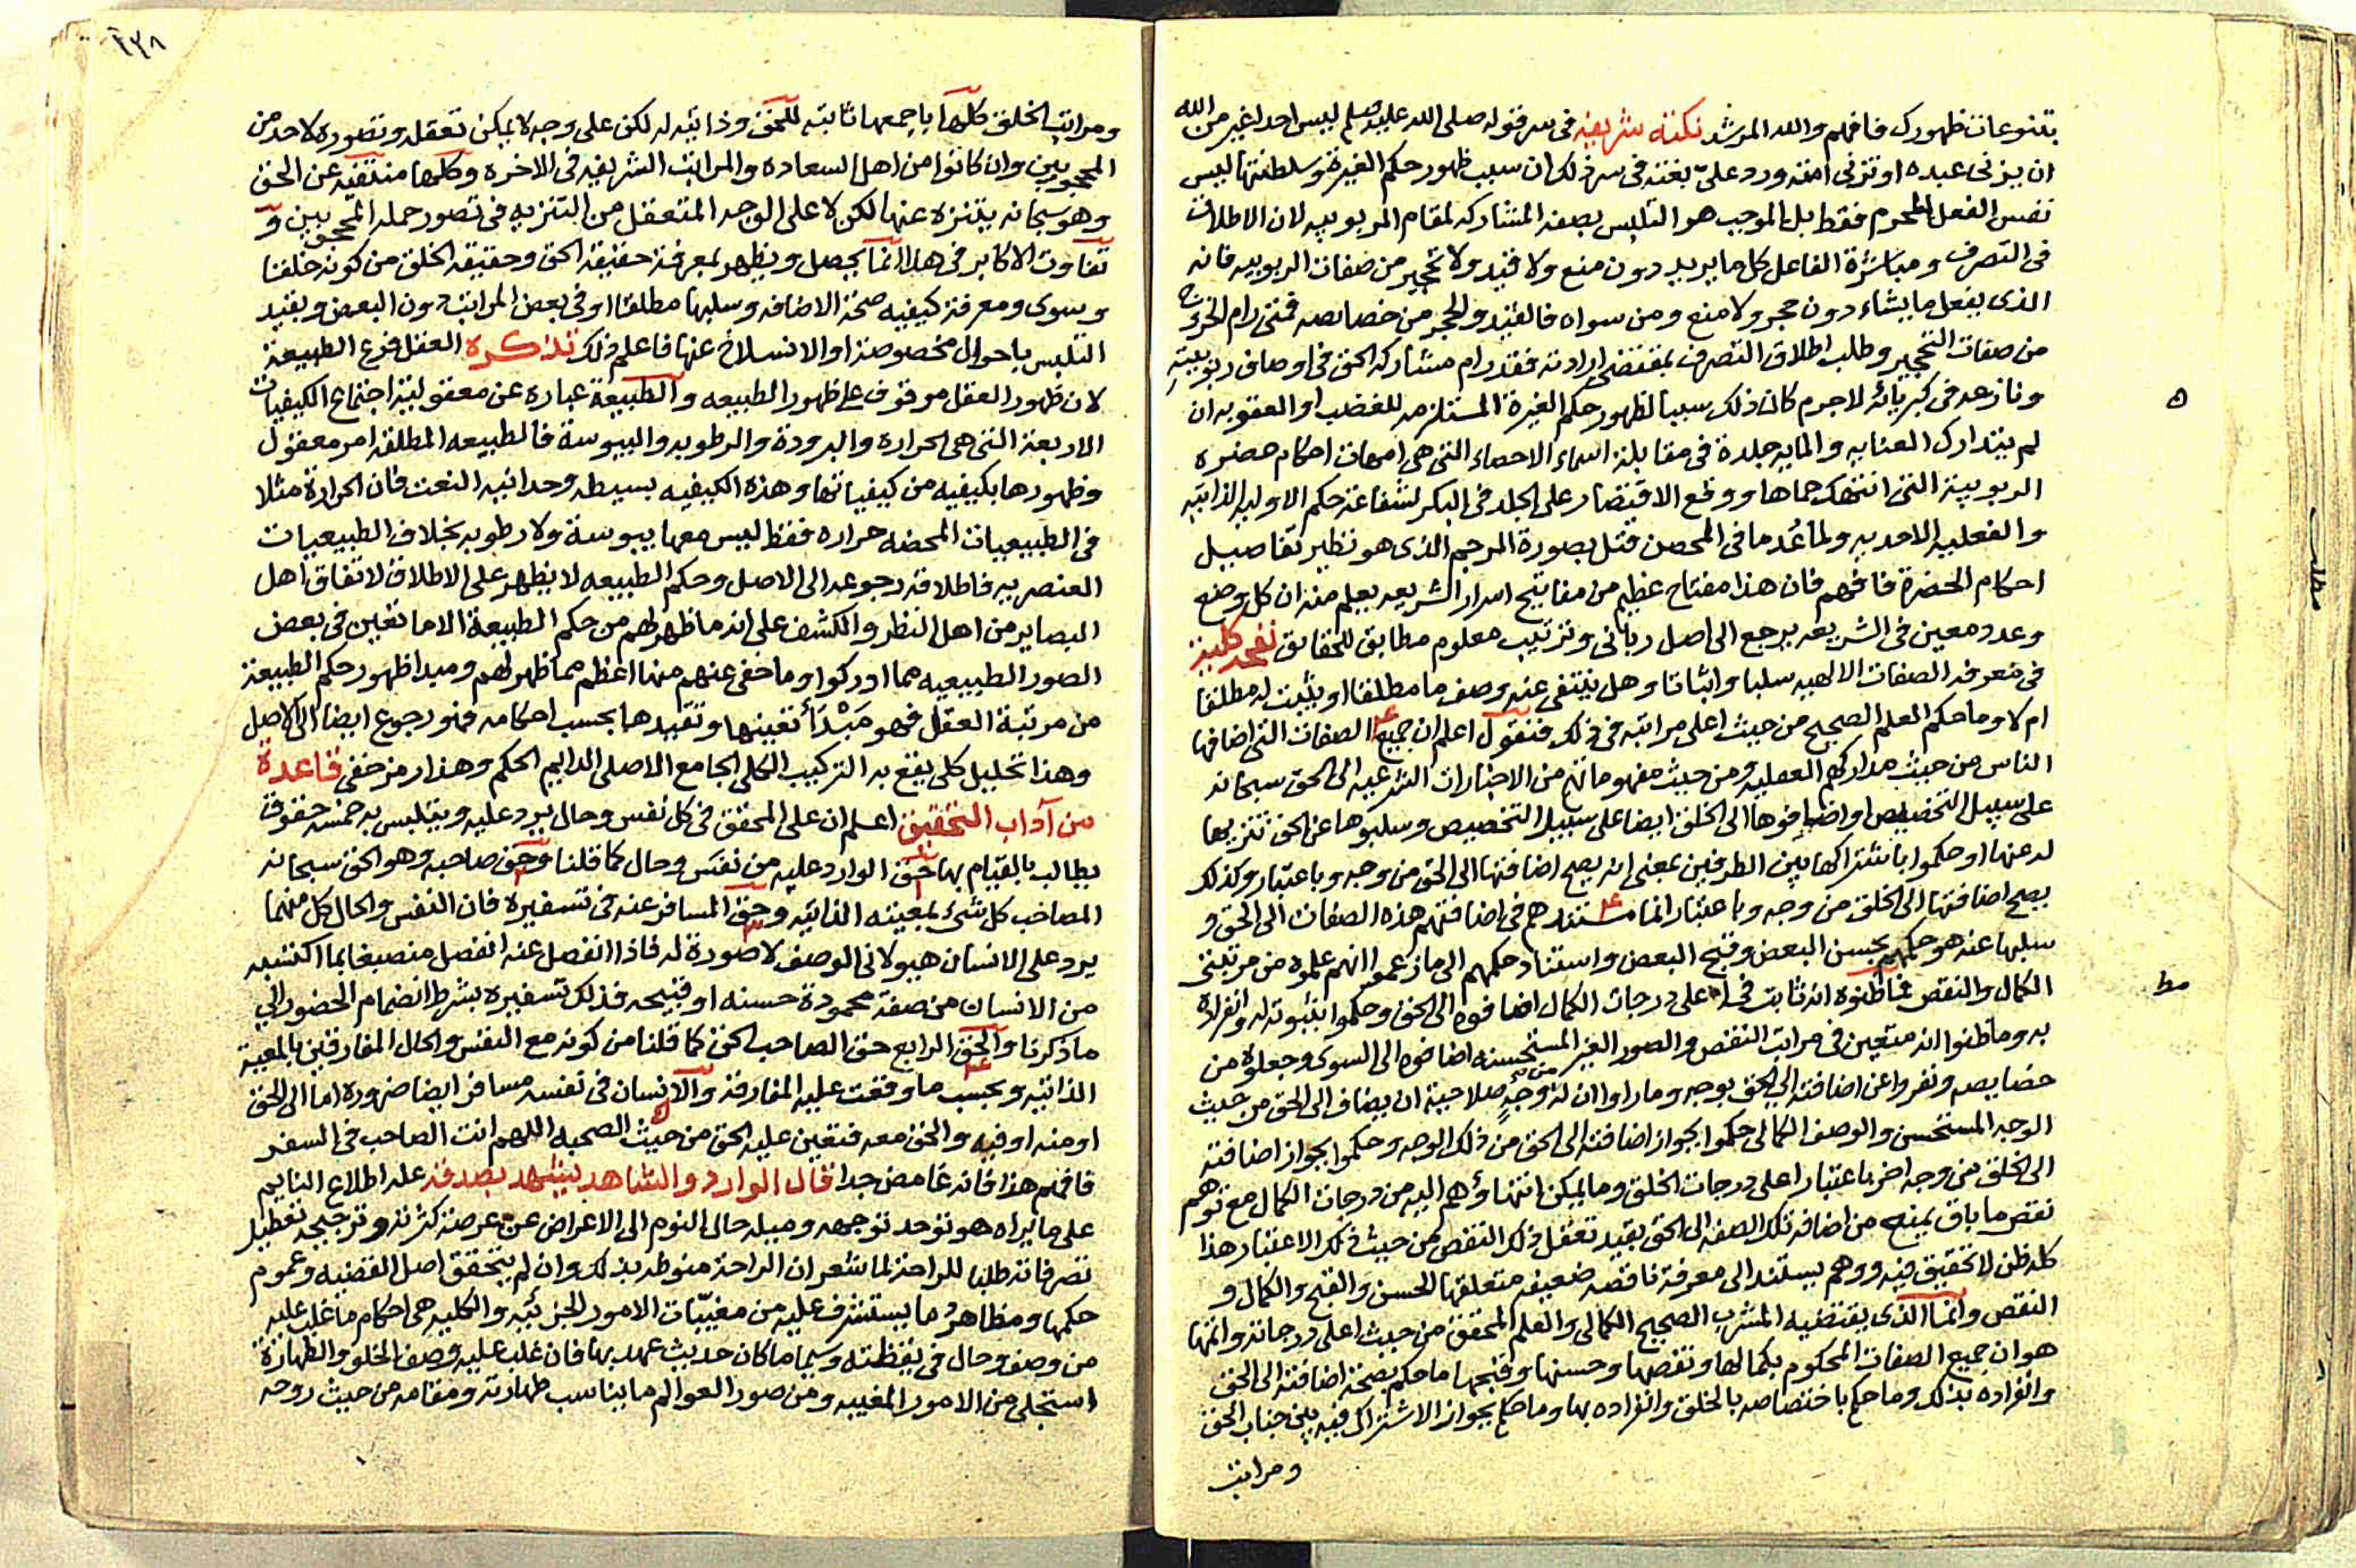 بتنوعات ظهورك فافهم والله المرشد نكتة شريفة فى سر قوله صلى الله عليه وسلم ليس احد اغير من الله
ان يزنى عبده او تزنى امته ورد علىّ بغتة فى سر ذلك ان سبب ظهور حكم الغيرة وسلطنتها ليس
نفس الفعل المحرم فقط بل الموجب هو التلبس بصفة المشاركة لمقام الربوبيه لان الاطلاق
فى التصرف ومباشرة الفاعل كل ما يريد دون منع ولا قيد ولا تحجير من صفات الربوبيه فانه
الذى يفعل ما يشاء دون حجر ولا منع ومن سواه فالقيد والحجر من خصائصه فمتى رام الخروج
من صفات التحجير وطلب اطلاق التصرف بمقتضى ارادته فقد رام مشاركة الحق فى اوصاف ربوبيته
ونازعه فى كبريائه لا جرم كان ذلك سببا لظهور حكم الغيرة المستلزمه للغضب او العقوبه ان
لم يتدارك العنايه والمايه جلدة فى مقابلة اسماء الاحصاء التى هى امهات احكام حضرة
الربوبية التى انتهك حماها ووقع الاقتصار على الجلد فى البكر لشفاعة حكم الاوليه الذاتيه
والفعليه الاحديه ولما عُدما فى المحصن قتل بصورة الرجم الذى هو نظير تفاصيل
احكام الحضرة فافهم فان هذا مفتاح عظيم من مفاتيح اسرار الشريعه يعلم منه ان كل وضع
وعدد معين فى الشريعه يرجع الى اصل ربانى وترتيب معلوم مطابق للحقايق نفحه كلية
فى معرفة الصفات الالهيه سلبا واثباتا وهل ينتفى عنه وصف ما مطلقا او يثبت له مطلقا
ام لا وما حكم العلم الصحيح من حيث اعلى مراتبه فى ذلك فنقول اعلم ان جميع الصفات التى اضافها
الناس من حيث مداركهم العقليه ومن حيث مفهوماتهم من الاخبارات الشرعيه الى الحق سبحانه
على سبيل التخصيص او اضافوها الى الخلق ايضا على سبيل التخصيص وسلبوها عن الحق تنزيها
له عنها او حكموا باشتراكها بين الطرفين بمعنى انه يصح اضافتها الى الحق من وجه وباعتبار وكذلك
يصح اضافتها الى الخلق من وجه وباعتبار انما مستندهم فى اضافتهم هذه الصفات الى الحق و
سلبها عنه هو حكمهم بحسن البعض وقبح البعض واستناد حكمهم الى ما زعموا انهم علموه من مرتبتى
الكمال والنقص فما ظنوه انه ثابت فى اعلى درجات الكمال اضافوه الى الحق وحكموا بثبوته له وانفراده
به وما ظنوا انه متعين فى مراتب النقص والصور الغير المستحسنه اضافوه الى السوى وجعلوه من
خصايصه ونفروا عن اضافته الى الحق بوجه وما راوا ان له من وجهٍ صلاحية ان يضاف الى الحق من حيث
الوجه المستحسن والوصف الكمالى حكموا بجواز اضافته الى الحق من ذلك الوجه وحكموا بجواز اضافته
الى الخلق من وجه اخر باعتبار اعلى درجات الخلق وما يمكن انتهاؤهم اليه من درجات الكمال مع توهم
نقص ما باق يمنع من اضافة تلك الصفه الى الحق بقيد تعقل ذلك النقص من حيث ذلك الاعتبار هذا
كله ظن لا تحقيق فيه ووهم يستند الى معرفة ناقصه ضعيفه متعلقها الحسن والقبح والكمال و
النقص وانما الذى يقتضيه المشرب الصحيح الكمالى والعلم المحقق من حيث اعلى درجاته واتمها
هو ان جميع الصفات المحكوم بكمالها ونقصها وحسنها وقبحها ما حكم بصحة اضافته الى الحق
وانفراده بذلك وما حكم باختصاصه بالخلق وانفراده بها وما حكم بجواز الاشتراك فيه بين جناب الحق
ومراتب
مط
مطلب
ومراتب الخلق كلها باجمعها ثابتة للحق وذاتيه له لكن على وجه لا يمكن تعقله وتصوره لاحد من
المحجوبين وان كانوا من اهل السعاده والمراتب الشريفه فى الاخره وكلها منتفيه عن الحق
وهو سبحانه يتنزه عنها لكن لا على الوجه المتعقل من التنزيه فى تصور جمله المحجوبين و
تفاوت الاكابر فى هذا انما يحصل ويظهر بمعرفة حقيقة الحق وحقيقة الخلق من كونه خلقا
وسوى ومعرفة كيفيه صحة الاضافه وسلبها مطلقا او فى بعض المراتب دون البعض وبقيد
التلبس باحوال مخصوصة او الانسلاخ عنها فاعلم ذلك تذكره العقل فرع الطبيعة
لان ظهور العقل موقوف على ظهور الطبيعه والطبيعة عباره عن معقولية اجتماع الكيفيات
الاربعة التى هى الحراره والبرودة والرطوبه واليبوسة فالطبيعه المطلقه امر معقول
وظهورها بكيفيه من كيفياتها وهذه الكيفيه بسيطه وحدانيه النعت فان الحرارة مثلا
فى الطبيعيات المحضه حراره فقط ليس معها يبوسة ولا رطوبه بخلاف الطبيعيات
العنصريه فاطلاقه رجوعه الى الاصل وحكم الطبيعه لا يظهر على الاطلاق لاتفاق اهل
البصاير من اهل النظر والكشف على انه ما ظهر لهم من حكم الطبيعة الا ما تعين فى بعض
الصور الطبيعيه مما ادركوا وما خفى عنهم منها اعظم مما ظهر لهم ومبدا ظهور حكم الطبيعة
من مرتبة العقل فهو مَبْدَأ تعينها وتقيدها بحسب احكامه فهو رجوع ايضا الى الاصل
وهذا تحليل كلى يقع به التركيب الكلى الجامع الاصلى الدايم الحكم وهذا رمز خفى قاعدة
من آداب التحقيق اعلم ان على المحقق فى كل نفس وحال يرد عليه ويتلبس به خمسه حقوق
يطالب بالقيام بها حق الوارد عليه من نفس وحال كما قلنا وحق صاحبه وهو الحق سبحانه
المصاحب كل شئ بمعيته الذاتيه وحق المسافر عنه فى تسفيره فان النفس والحال كل منهما
يرد على الانسان هيولانى الوصف لا صورة له فاذا انفصل عنه انفصل منصبغا بما اكتسبه
من الانسان من صفة محمودة حسنه او قبيحه فذلك تسفيره بشرط انضمام الحضور الى
ما ذكرنا والحق الرابع حق الصاحب الحق كما قلنا من كونه مع النفس والحال المفارقين بالمعية
الذاتيه وبحسب ما وقعت عليه المفارقة والانسان فى نفسه مسافر ايضا ضروره اما الى الحق
او منه او فيه والحق معه فتعين عليه الحق من حيث الصحبه اللهم انت الصاحب فى السفر
فافهم هذا فانه غامض جدا قال الوارد والشاهد يشهد بصدقه علة اطلاع النايم
على ما يراه هو توحد توجهه وميله حال النوم الى الاعراض عن عرصة كثرته وترجيحه تعطيل
تصرفاته طلبا للراحة لما شعر ان الراحة منوطه بذلك وان لم يتحقق اصل القضيه وعموم
حكمها ومظاهر ما يستشرف عليه من مغيّبات الامور الجزئيه والكليه هى احكام ما غلب عليه
من وصف وحال فى يقظته وسيما ما كان حديث عهد بها فان غلب عليه وصف الخلق والطهارة
استجلى من الامور المغيبه ومن صور العوالم ما يناسب طهارته ومقامه من حيث روحه